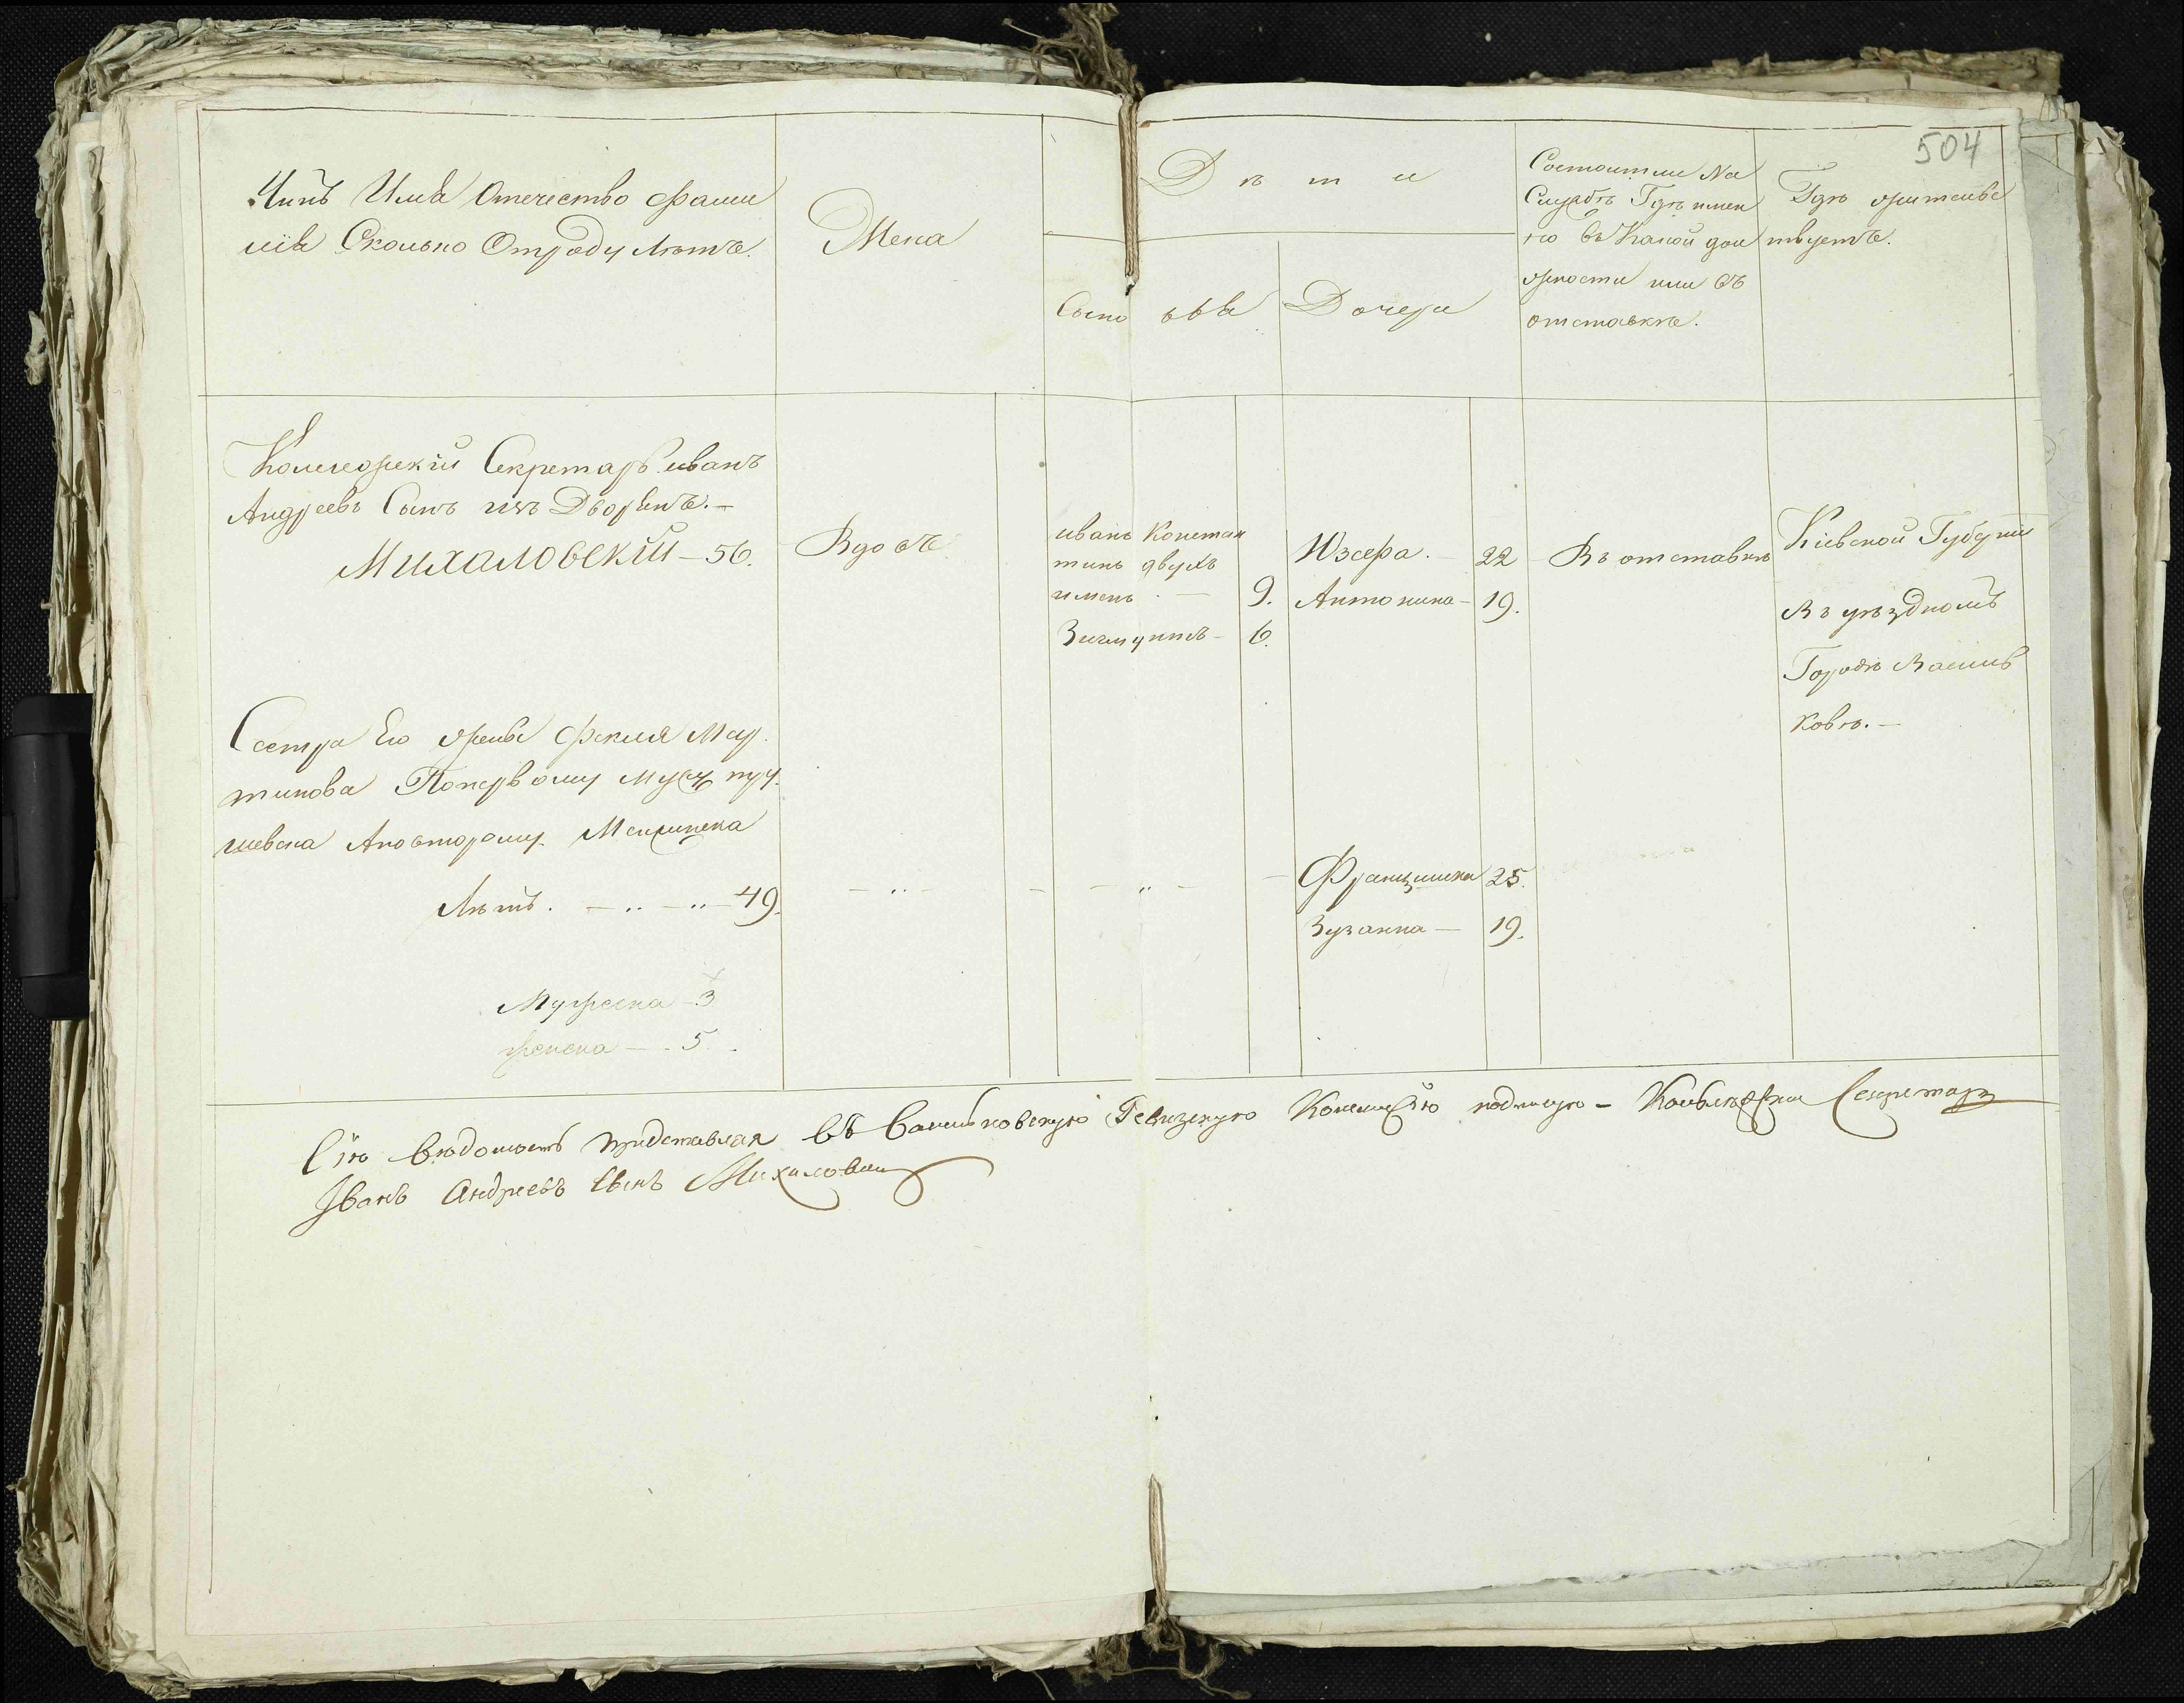 504
Чинъ Имя Отечество Фами
лія Сколько Отроду Летъ.
Жена
Дѣти
Сыно вья
Дочери
Состоитли На
Службѣ Гдѣ имен
но въ Какой дол
жности или въ
отставкѣ.
Гдѣ жительс
твуетъ.
Колежскій Секретарь иванъ
Андреевъ Сынъ изъ Дворянъ. —
Михаловскій — 56.
Вдовъ
иванъ Констан
тинъ двухъ
именъ — 9.
Зигмунтъ — 6.
Юзефа. — 22
Антонина — 19.
Въ отставкѣ
Кіевской Губерніи
Въ уѣздномъ
Городѣ Василь
ковѣ. —
Сестра Его жены Фекла Мар
тинова Поперьвому мужу
шевска Аповторому
Лѣтъ. — 49.
Францишка 25.
Зузанна — 19.
Мужеска — 3
женска — 5.
Сію вѣдомость придставляя въ Васильковскую Ревизскую Комиссію подписую — Колѣжскій Секретарь
Іванъ Андреевъ Сынъ Михаловскій